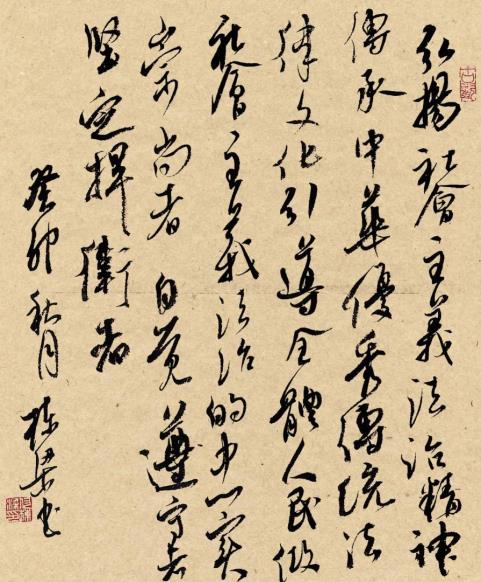 弘揚社會主義法治精神
傳承中華優秀傳統法
律文化引導全體人民做
社會主義法治的忠實
崇尚者自覺遵守者
堅定捍衛者
癸卯秋月 棟梁书